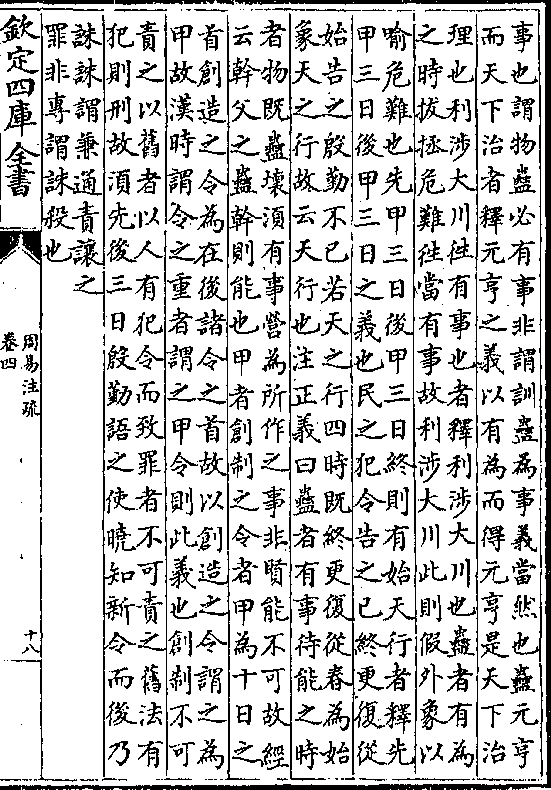 事也謂物蠱必有事非謂訓蠱為事義當然也蠱元亨
而天下治者釋元亨之義以有為而得元亨是天下治
理也利涉大川徃有事也者釋利涉大川也蠱者有為
之時拔拯危難徃當有事故利涉大川此則假外象以
喻危難也先甲三日後甲三日終則有始天行者釋先
甲三日後甲三日之義也民之犯令告之已終更復從
始告之殷勤不已若天之行四時既終更復從春為始
象天之行故云天行也注正義曰蠱者有事待能之時
者物既蠱壞湏有事營為所作之事非賢能不可故經
云幹父之蠱幹則能也甲者創制之令者甲為十日之
首創造之令為在後諸令之首故以創造之令謂之為
甲故漢時謂令之重者謂之甲令則此義也創制不可
責之以舊者以人有犯令而致罪者不可責之舊法有
犯則刑故湏先後三日殷勤語之使曉知新令而後乃
誅誅謂兼通責讓之
罪非專謂誅殺也
欽定四庫全書
周易注疏
卷四
十八